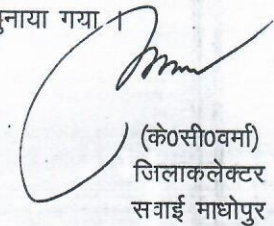 सुनाया गया ।
(के0सी0वर्मा)
जिलाकलेक्टर
सवाई माधोपुर